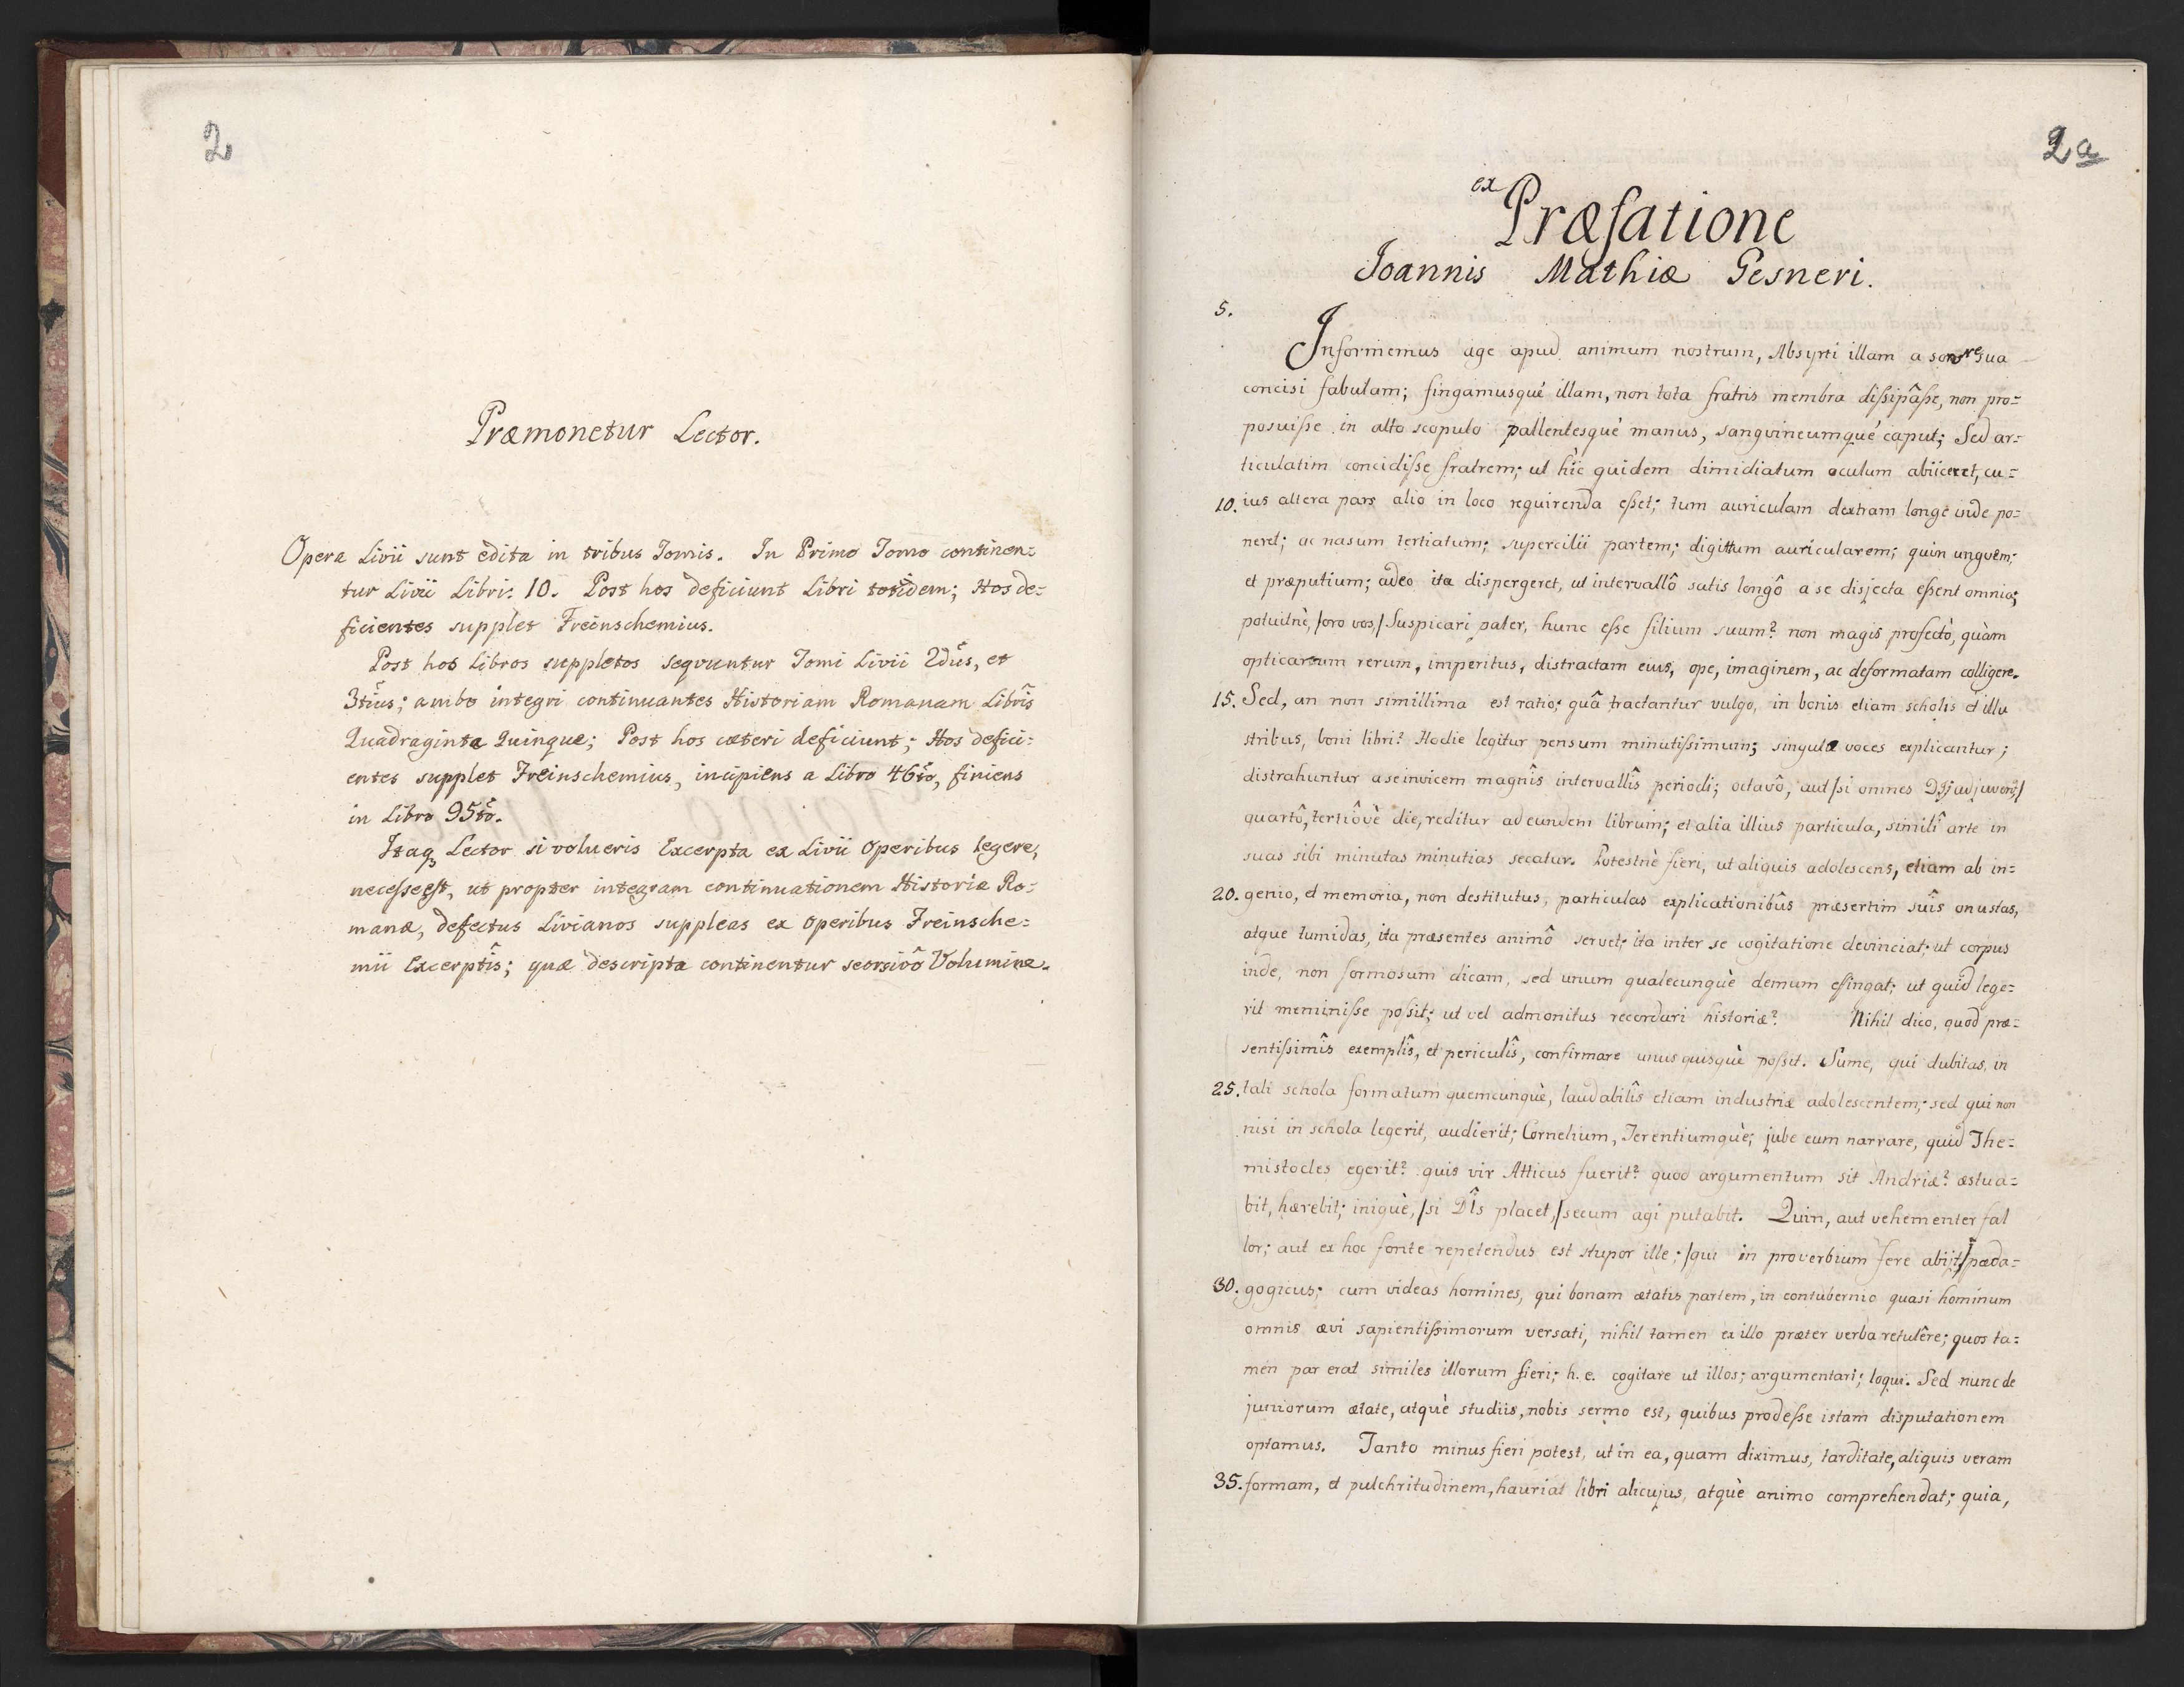 2
Præmonetur Lector.
Opera Livii sunt edita in tribus Tomis. In Primo Tomo continen=
tur Livii Libri: 10. Post hos deficiunt Libri totidem; Hos de=
ficientes supplet Freinschemius.
Post hos Libros suppletos seqvuntur Tomi Livii 2dus, et
3tius; ambo integri continuantes Historiam Romanam Libris
Quadraginta Quinque; Post hos cæteri deficiunt; Hos defici=
entes supplet Freinschemius, incipiens a Libro 46to, finiens
in Libro 95to.
Itaq Lector si volueris Excerpta ex Livii Operibus legere,
necesse est, ut propter integram continuationem Historiæ Ro=
manæ, defectus Livianos suppleas ex Operibus Freinsche=
mii Excerptîs; quæ descripta continentur seorsivô Volumine.
2a
ex Præfatione
Joannis Mathiæ Gesneri.
5.
Informemus age apud animum nostrum, Absyrti illam a sorore sua
concisi fabulam; fingamusquè illam, non tota fratris membra dissipâsse, non pro=
posuisse in alto scopulo pallentesquè manus, sangvineumquè caput; Sed ar=
ticulatim concidisse fratrem; ut hîc quidem dimidiatum oculum abiiceret, cu=
10. ius altera pars alio in loco requirenda esset; tum auriculam dextram longè inde po=
neret; ac nasum tertiatum; supercilii partem; digittum auricularem; quin unguem;
et præputium; adeo ita dispergeret, ut intervallô satis longô a se disjecta essent omnia;
potuitnè, /oro vos,/ Suspicari pater, hunc esse filium suum? non magis profectò, quàm
opticarum rerum, imperitus, distractam eius, ope, imaginem, ac deformatam colligere.
15. Sed, an non simillima est ratio; quâ tractantur vulgo, in bonis etiam scholis et illu
stribus, boni libri? Hodie legitur pensum minutissimum; singulæ voces explicantur;
distrahuntur a se invicem magnîs intervallîs periodi; octavô, aut /si omnes Djj adjuverint/
quartô, tertiôvè die, reditur ad eundem librum; et alia illius particula, similî arte in
suas sibi minutas minutias secatur. Potestnè fieri, ut aliquis adolescens, etiam ab in=
20. genio, et memoria, non destitutus, particulas explicationibûs præsertim suîs onustas,
atque tumidas, ita præsentes animô servet; ita inter se cogitatione devinciat; ut corpus
inde, non formosum dicam, sed unum qualecunquè demum effingat; ut quid lege=
rit meminisse possit; ut vel admonitus recordari historiæ? Nihil dico, quod præ=
sentissimîs exemplîs, et periculîs, confirmare unusquisquè possit. Sume, qui dubitas, in
25. tali schola formatum quemcunquè, laudabilîs etiam industriæ adolescentem; sed qui non
nisi in schola legerit, audierit; Cornelium, Terentiumquè; jube eum narrare, quid The=
mistocles egerit? quis vir Atticus fuerit? quod argumentum sit Andriæ? æstua=
bit, hærebit; iniquè, /si Dîs placet,/ secum agi putabit. Quin, aut vehementer fal
lor; aut ex hoc fonte repetendus est stupor ille; /qui in proverbium fere abijt/ pæda=
30. gogicus; cum videas homines, qui bonam ætatis partem, in contubernio quasi hominum
omnis ævi sapientissimorum versati, nihil tamen ex illo præter verba retulêre; quos ta=
men par erat similes illorum fieri; h. e. cogitare ut illos; argumentari; loqui. Sed nunc de
juniorum ætate, atquè studiis, nobis sermo est, quibus prodesse istam disputationem
optamus. Tanto minus fieri potest, ut in ea, quam diximus, tarditate, aliquis veram
35. formam, et pulchritudinem, hauriat libri alicujus, atquè animo comprehendat; quia,